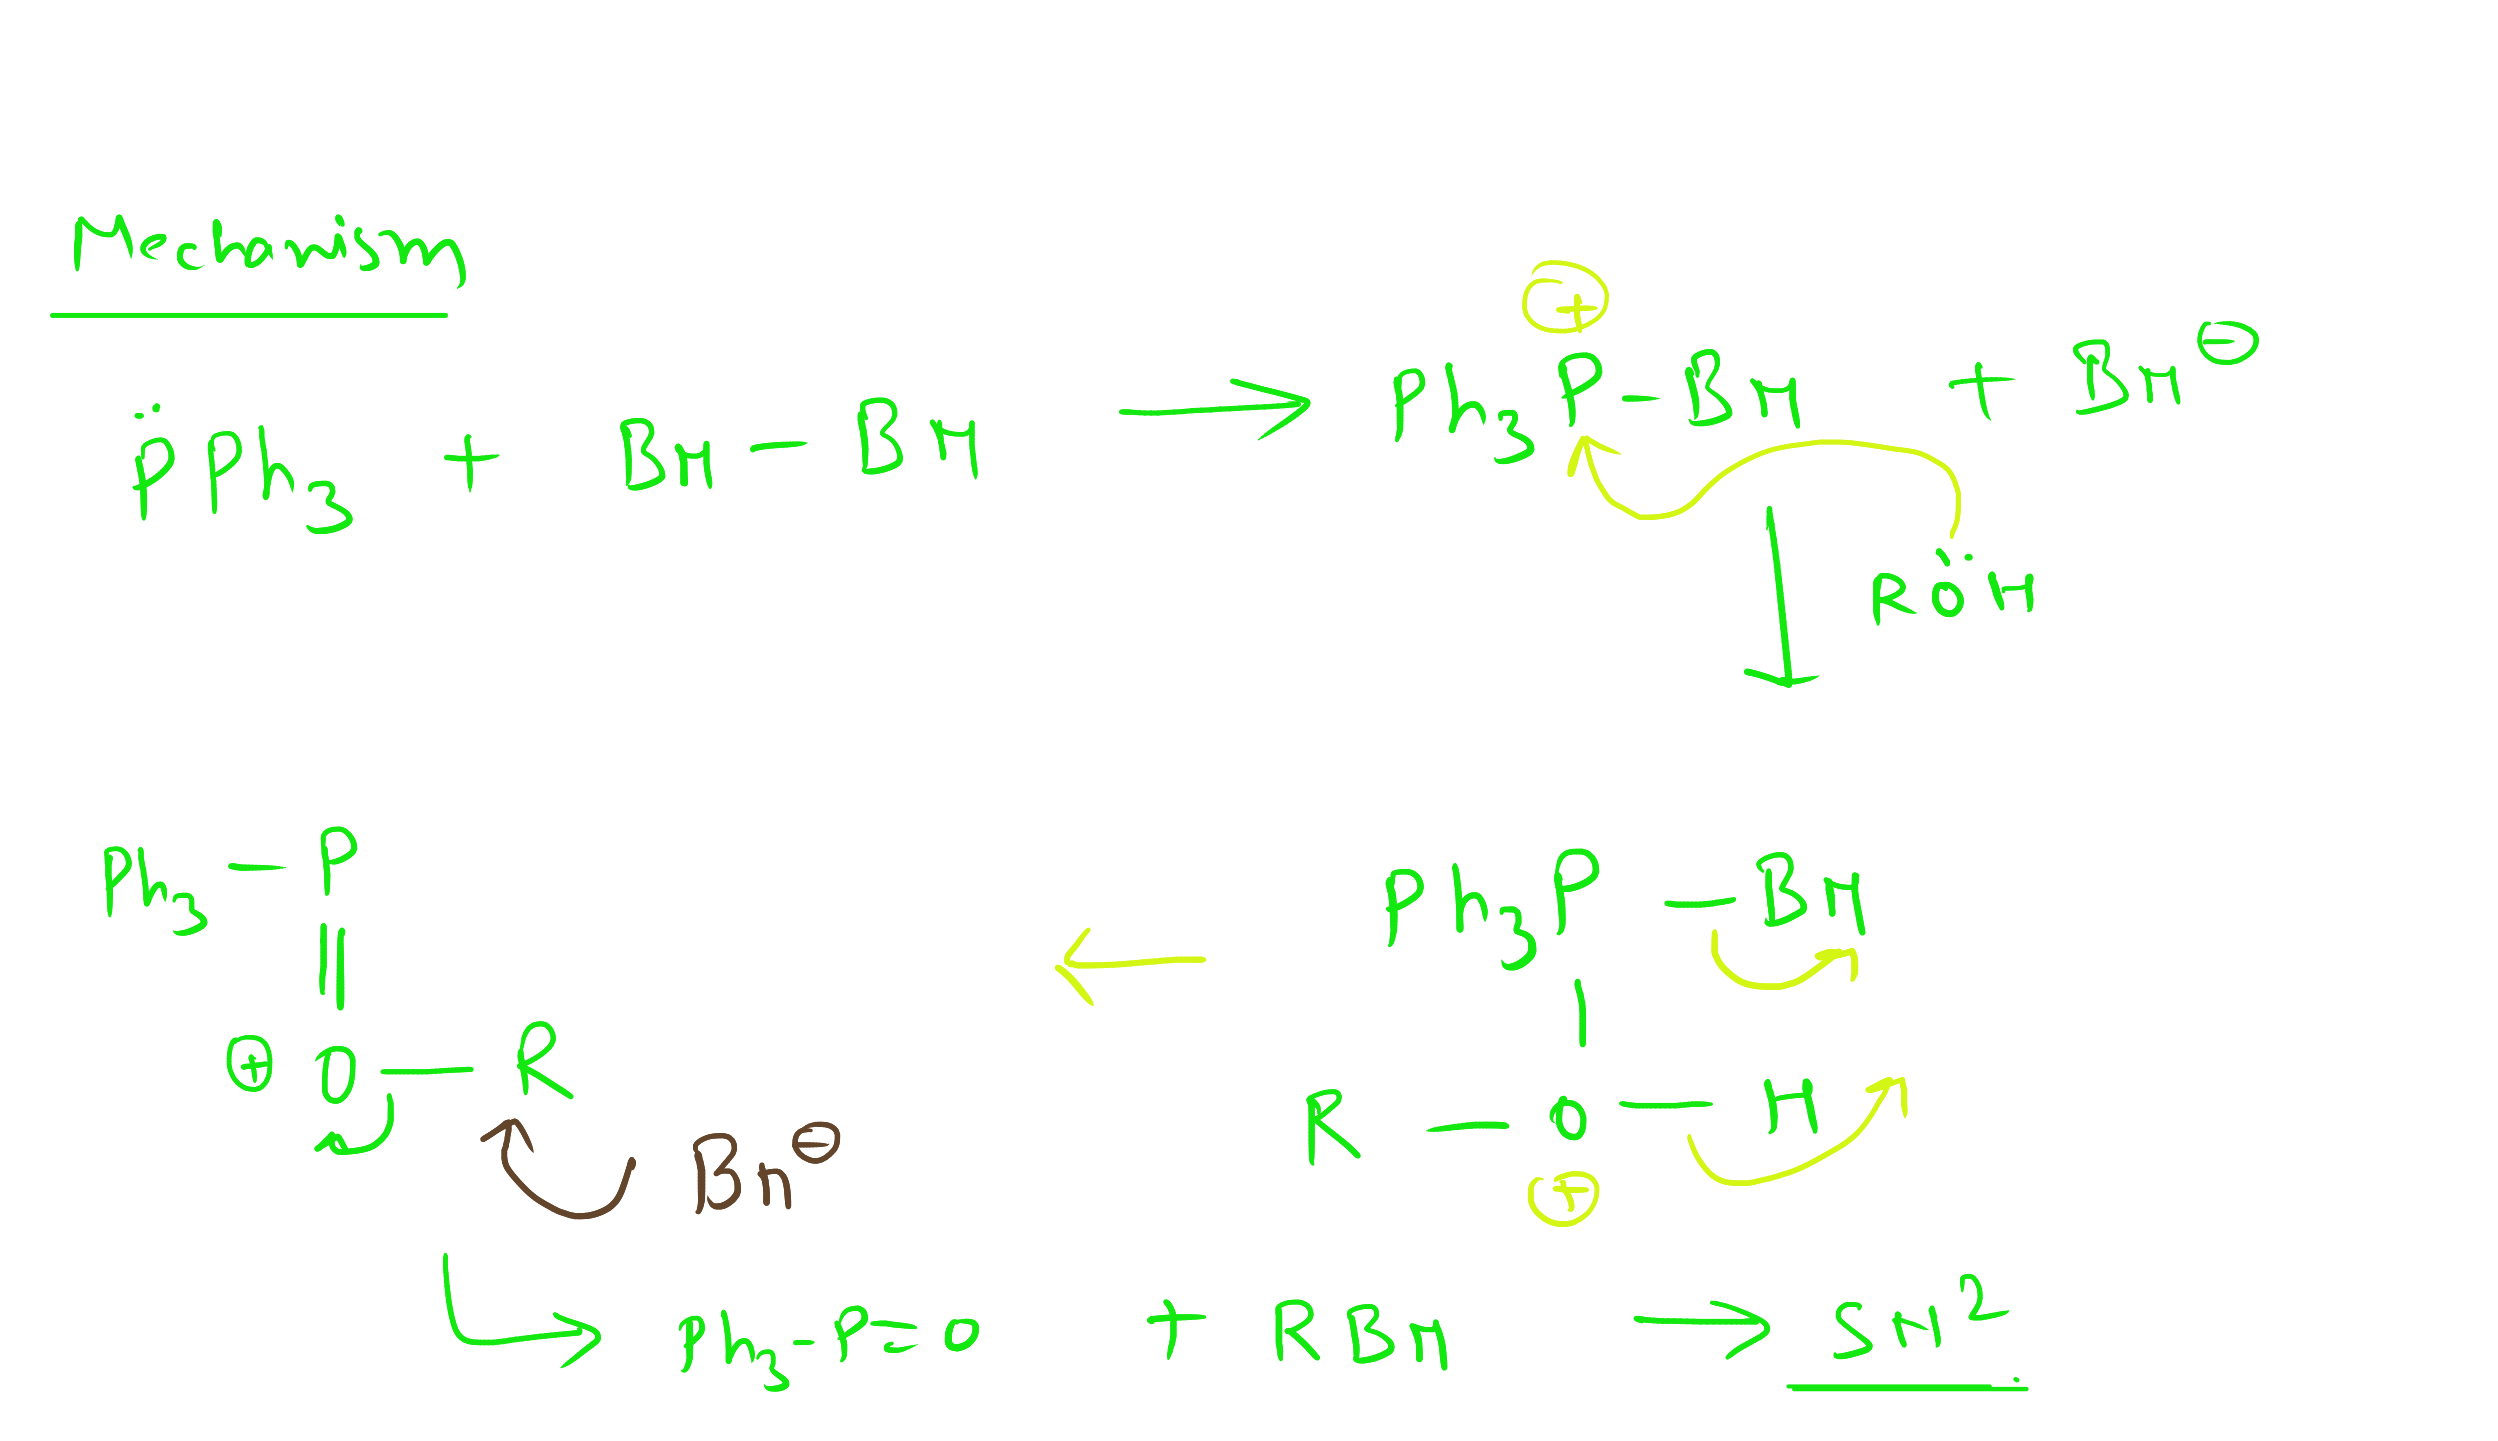 Mechanism
P̈Ph₃ + Br – Br → Ph₃P – Br + Br⊖
⊕
RÖH
Ph₃ – P
Ph₃P – Br
⊕ O – R
R – O – H
⊕
Br⊖
Ph₃–P=O + RBr → SN²